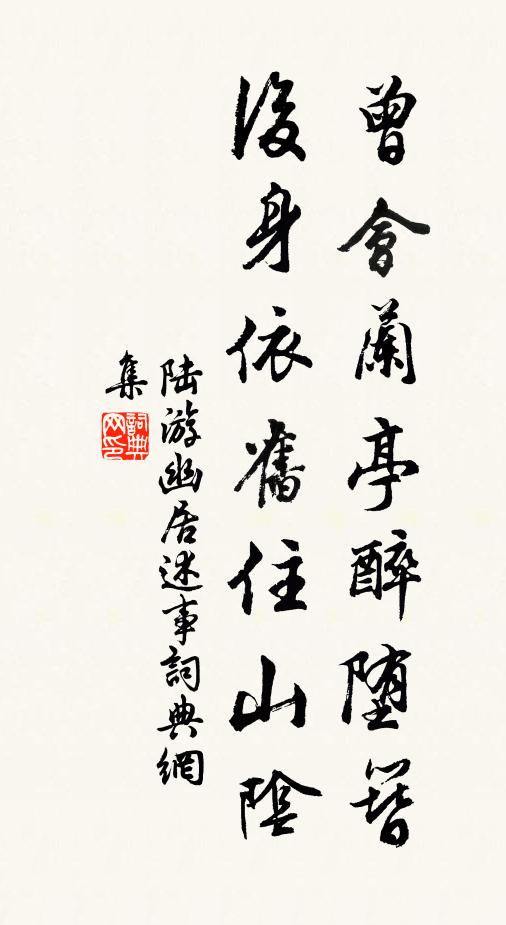 曾會蘭亭醉堕簪
後身依舊住山陰
陆游幽居述事詞典網
集
詞典
网印